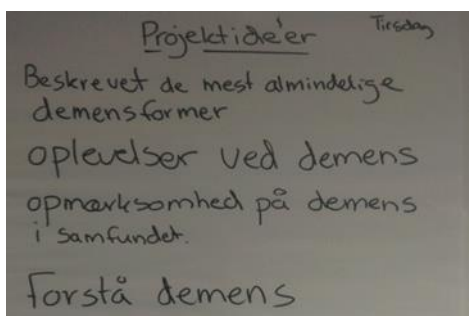 Projektidéer Tirsdag
Beskrevet de mest almindelige
demensformer
oplevelser ved demens
opmærksomhed på demens
i samfundet.
Forstå demens